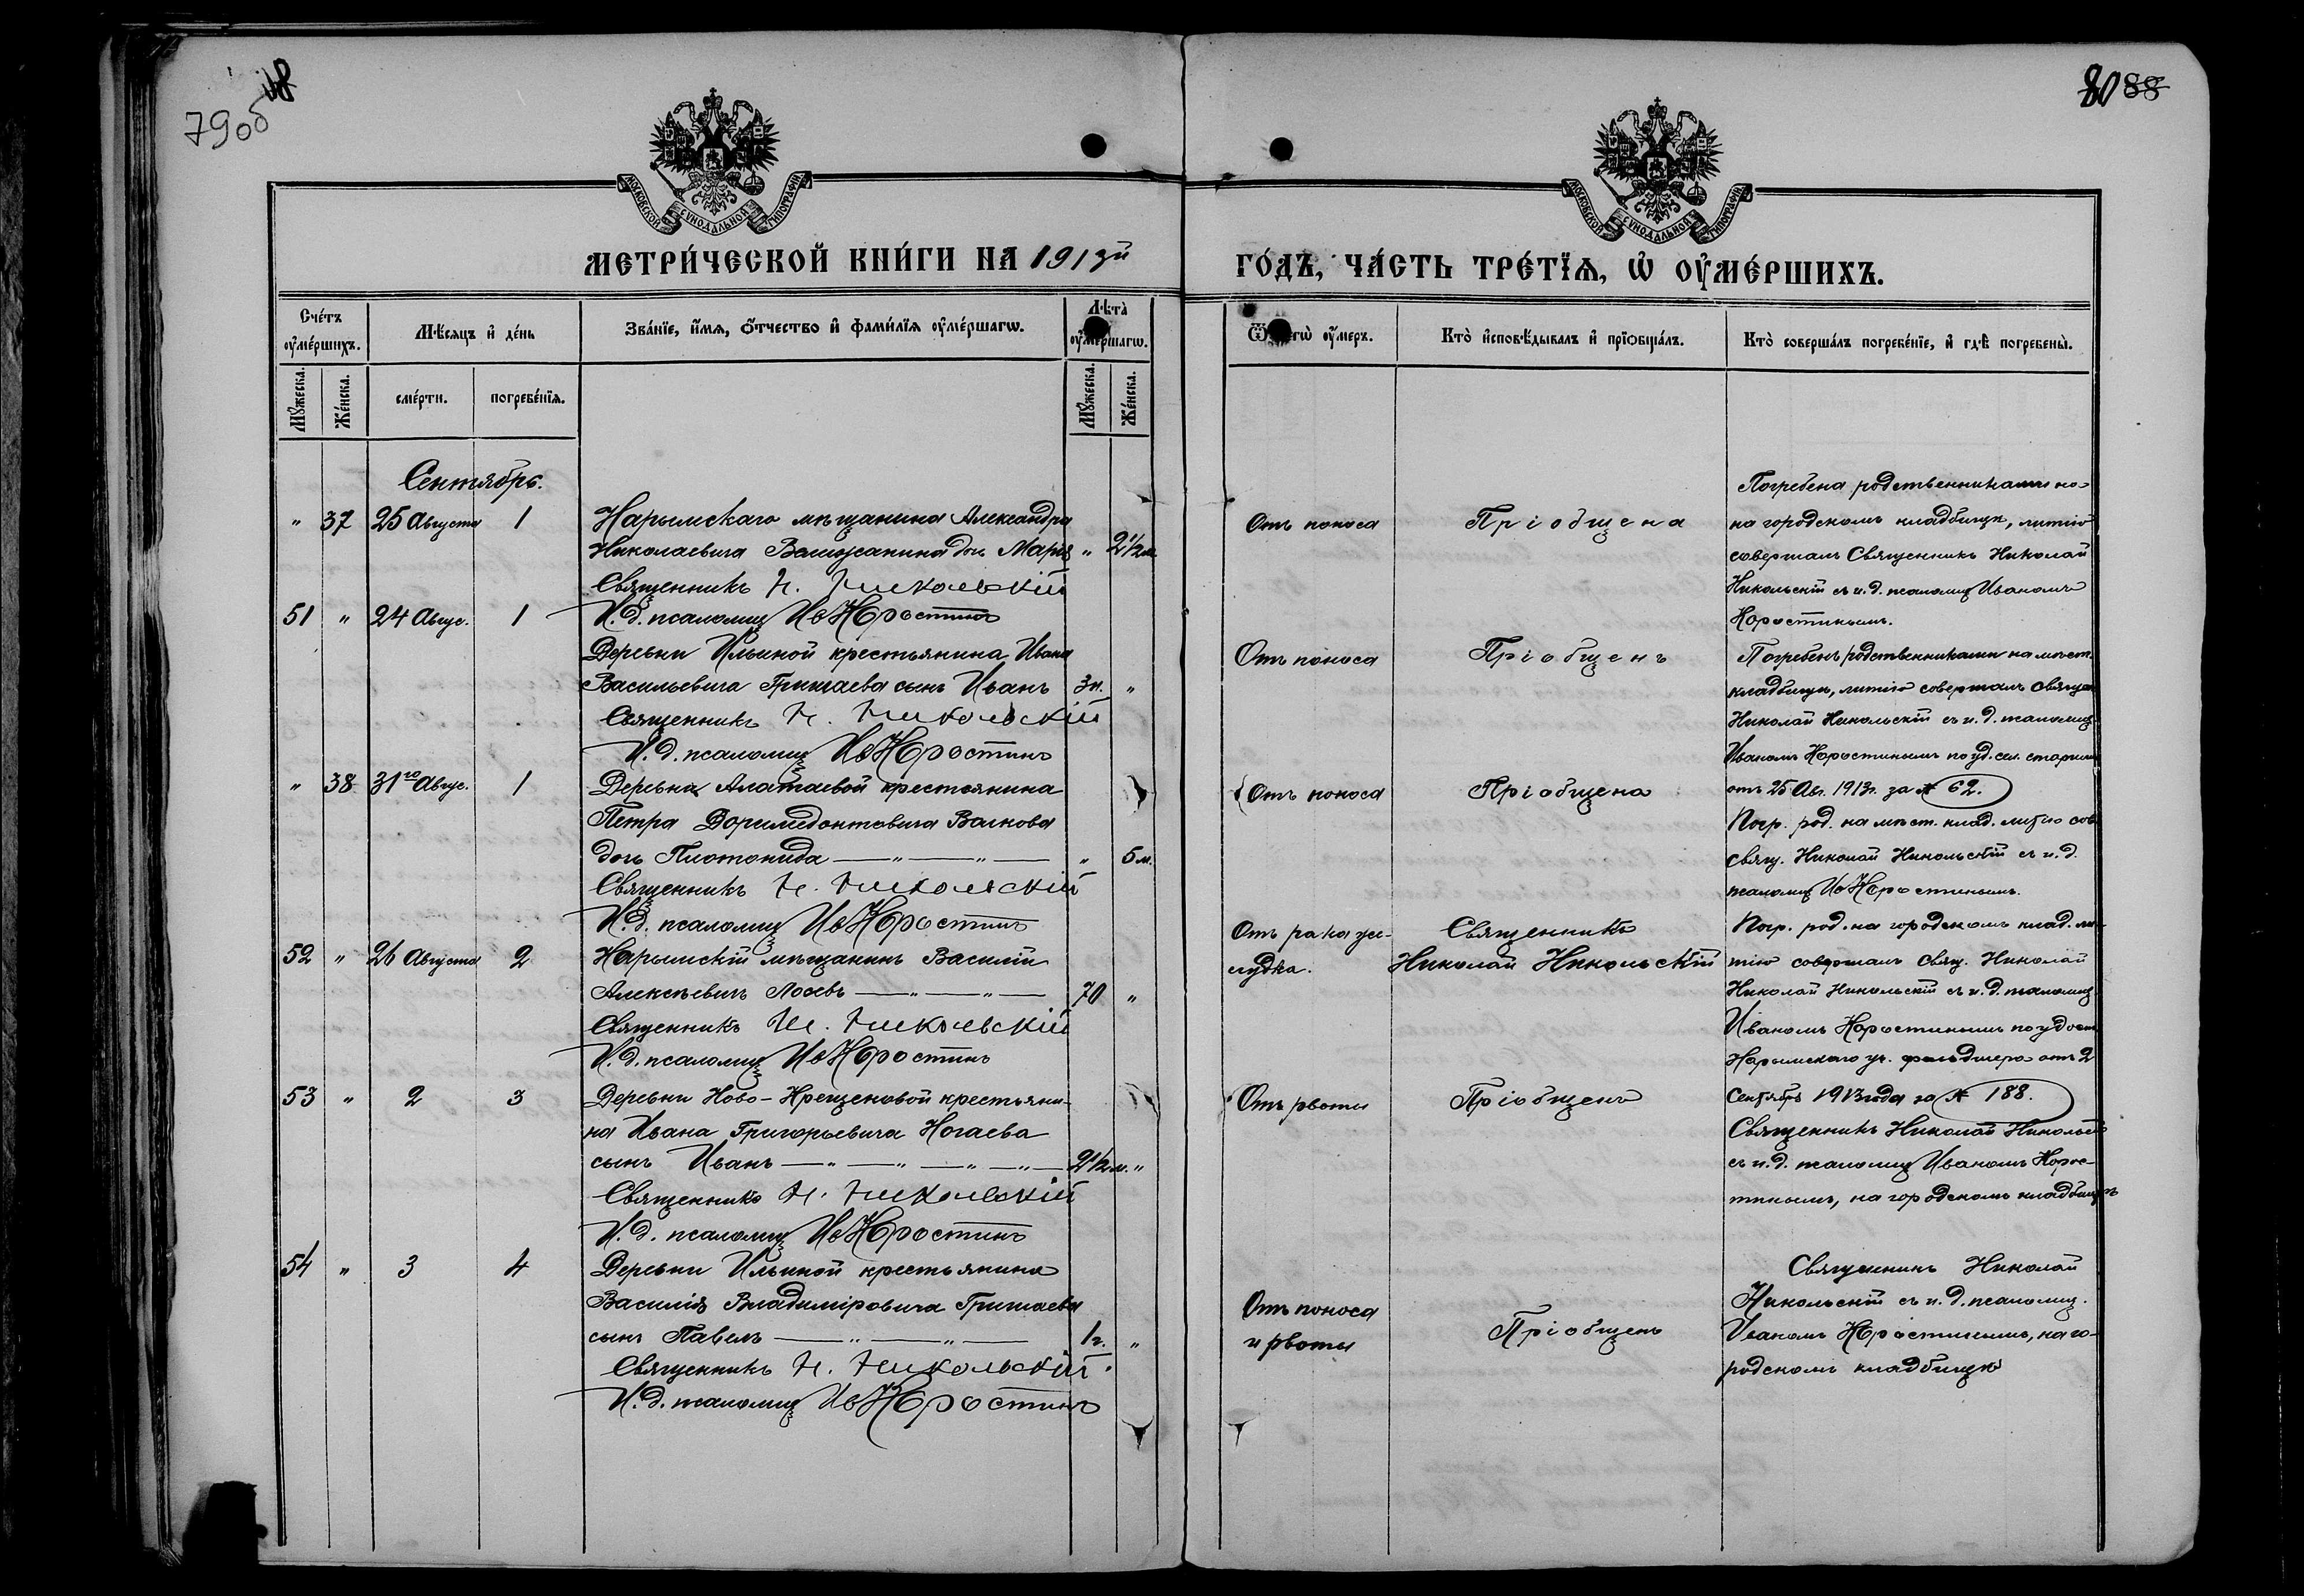 79об
80 88
МОСКОВСКОЙ СѴНОДАЛЬНОЙ ТИПОГРАФІИ
МОСКОВСКОЙ СѴНОДАЛЬНОЙ ТИПОГРАФІИ
МЕТРИ́ЧЕСКОЙ КНИ́ГИ НА 1913й
ГО́ДЪ, ЧА́СТЬ ТРЕ́ТЇѦ, Ѡ҆ ОУ҆МЕ́РШИХЪ.
Сче́тъ оу҆ме́ршихъ.
Мѣ́сѧцъ и҆ де́нь
Зва́нїе, и҆́мѧ, ѻ҆́тчество и҆ фами́лїѧ оу҆ме́ршагѡ.
Лѣ́та оу҆ме́ршагѡ.
Кто̀ и҆сповѣ́дывалъ и҆ прїѡбща́лъ.
Кто̀ соверша́лъ погребе́нїе, и҆ гдѣ̀ погребены̀.
Мꙋ́жеска.
Же́нска.
сме́рти.
погребе́нїѧ.
Мꙋ́жеска.
Же́нска.
Сентябрь.
" 37 25 Августа 1
Нарымскаго мѣщанина Александра
Николаевича дочь Марія " 2½ м.
Священникъ Н. Никольскій
И. д. псаломщ Ив Коростинъ
Отъ поноса
Пріобщена
Погребена родственниками
на городскомъ кладбищѣ, литію
совершалъ Священникъ Николай
Никольскій съ и. д. псаломщ Иваномъ
Коростинымъ.
51 " 24 Авгус. 1
Деревни Ильиной крестьянина Ивана
Васильевича Гришаева сынъ Иванъ 3 н. "
Священникъ Н. Никольскій
И. д. псаломщ Ив Коростинъ
Отъ поноса
Пріобщенъ
Погребенъ родственниками на мѣст.
кладбищѣ, литію совершалъ Священ
Николай Никольскій съ и. д. псаломщ
Иваномъ Коростинымъ по уд. сел. старшин
отъ 25 Авг. 1913 г. за № 62.
" 38 31го Авгус. 1
Деревни Алатаевой крестьянина
Петра Доримедонтовича Волкова
дочь " 5 м.
Священникъ Н. Никольскій
И. д. псаломщ Ив Коростинъ
Отъ поноса
Пріобщена
Погр. род. на мѣст. клад. литію сов
свящ. Николай Никольскій съ и. д.
псаломщ Ив Коростинымъ.
52 " 26 Августа 2
Нарымскій мѣщанинъ Василій
Алексѣевичъ Лосевъ 70 "
Священникъ Н. Никольскій
И. д. псаломщ Ив Коростинъ
Отъ рака же-
лудка.
Священникъ
Николай Никольскій
Погр. род. на городскомъ клад. ли-
тію совершалъ Свящ. Николай
Николай Никольскій съ и. д. псаломщ
Иваномъ Коростинымъ по удост
Нарымскаго уч. фельдшера отъ 2
Сентября 1913 года за № 188.
53 " 2 3
Деревни Ново-Крещеновой крестьяни-
на Ивана Григорьевича Ногаева
сынъ Иванъ 2½ м. "
Священникъ Н. Никольскій
И. д. псаломщ Ив Коростинъ
Отъ рвоты
Пріобщенъ
Священникъ Николай Никольскій
съ и. д. псаломщ Иваномъ Корос-
тинымъ, на городскомъ кладбищѣ
54 " 3 4
Деревни Ильиной крестьянина
Василія Владиміровича Гришаева
сынъ Павелъ 1 г. "
Священникъ Н. Никольскій
И. д. псаломщ Ив Коростинъ
Отъ поноса
и рвоты
Пріобщенъ
Священникъ Николай
Никольскій съ и. д. псаломщ.
Иваномъ Коростинымъ, на го-
родскомъ кладбищѣ